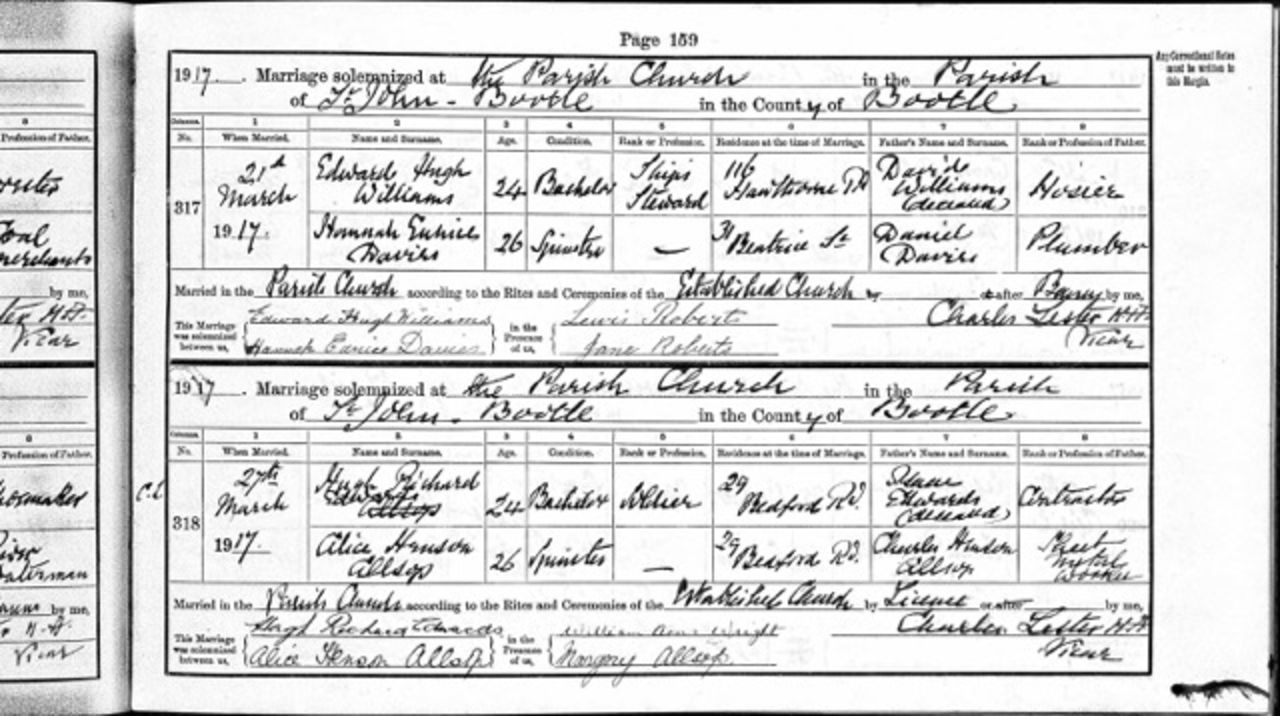 Page 159
Any Correctional Notes
must be written in
this Margin.
1917. Marriage solemnized at the Parish Church in the Parish
of St John - Bootle in the County of Bootle.
Columns. 1 2 3 4 5 6 7 8
No. When Married. Name and Surname. Age. Condition. Rank or Profession. Residence at the time of Marriage. Father's Name and Surname. Rank or Profession of Father.
317 March 1917. Edward Hugh Williams 24 Bachelor Ships Steward 116 Hawthorne Rd David Williams (deceased) Hosier
Hannah Eunice Davies 26 Spinster — 31 Beatrice St Daniel Davies Plumber
Married in the Parish Church according to the Rites and Ceremonies of the Established Church by or after Banns by me,
This Marriage was solemnized between us, Edward Hugh Williams in the Presence of us, Lewis Roberts Charles Lester
Hannah Eunice Davies Jane Roberts Vicar
1917. Marriage solemnized at the Parish Church in the Parish
of St John - Bootle in the County of Bootle.
Columns. 1 2 3 4 5 6 7 8
No. When Married. Name and Surname. Age. Condition. Rank or Profession. Residence at the time of Marriage. Father's Name and Surname. Rank or Profession of Father.
C.L.
318 27th March 1917. Hugh Richard Edwards Allsop 24 Bachelor Soldier 29 Bedford Rd. Edwards (deceased) Contractor
Alice Henson Allsop 26 Spinster — 29 Bedford Rd. Charles Henson Allsop Sheet metal worker
Married in the Parish Church according to the Rites and Ceremonies of the Established Church by Licence or after by me,
This Marriage was solemnized between us, Hugh Richard Edwards in the Presence of us, William Wright Charles Lester
Alice Henson Allsop Margery Allsop. Vicar
Profession of Father.
Coal
merchant
by me,
Vicar
8
Profession of Father.
Shoemaker
by me,
Vicar